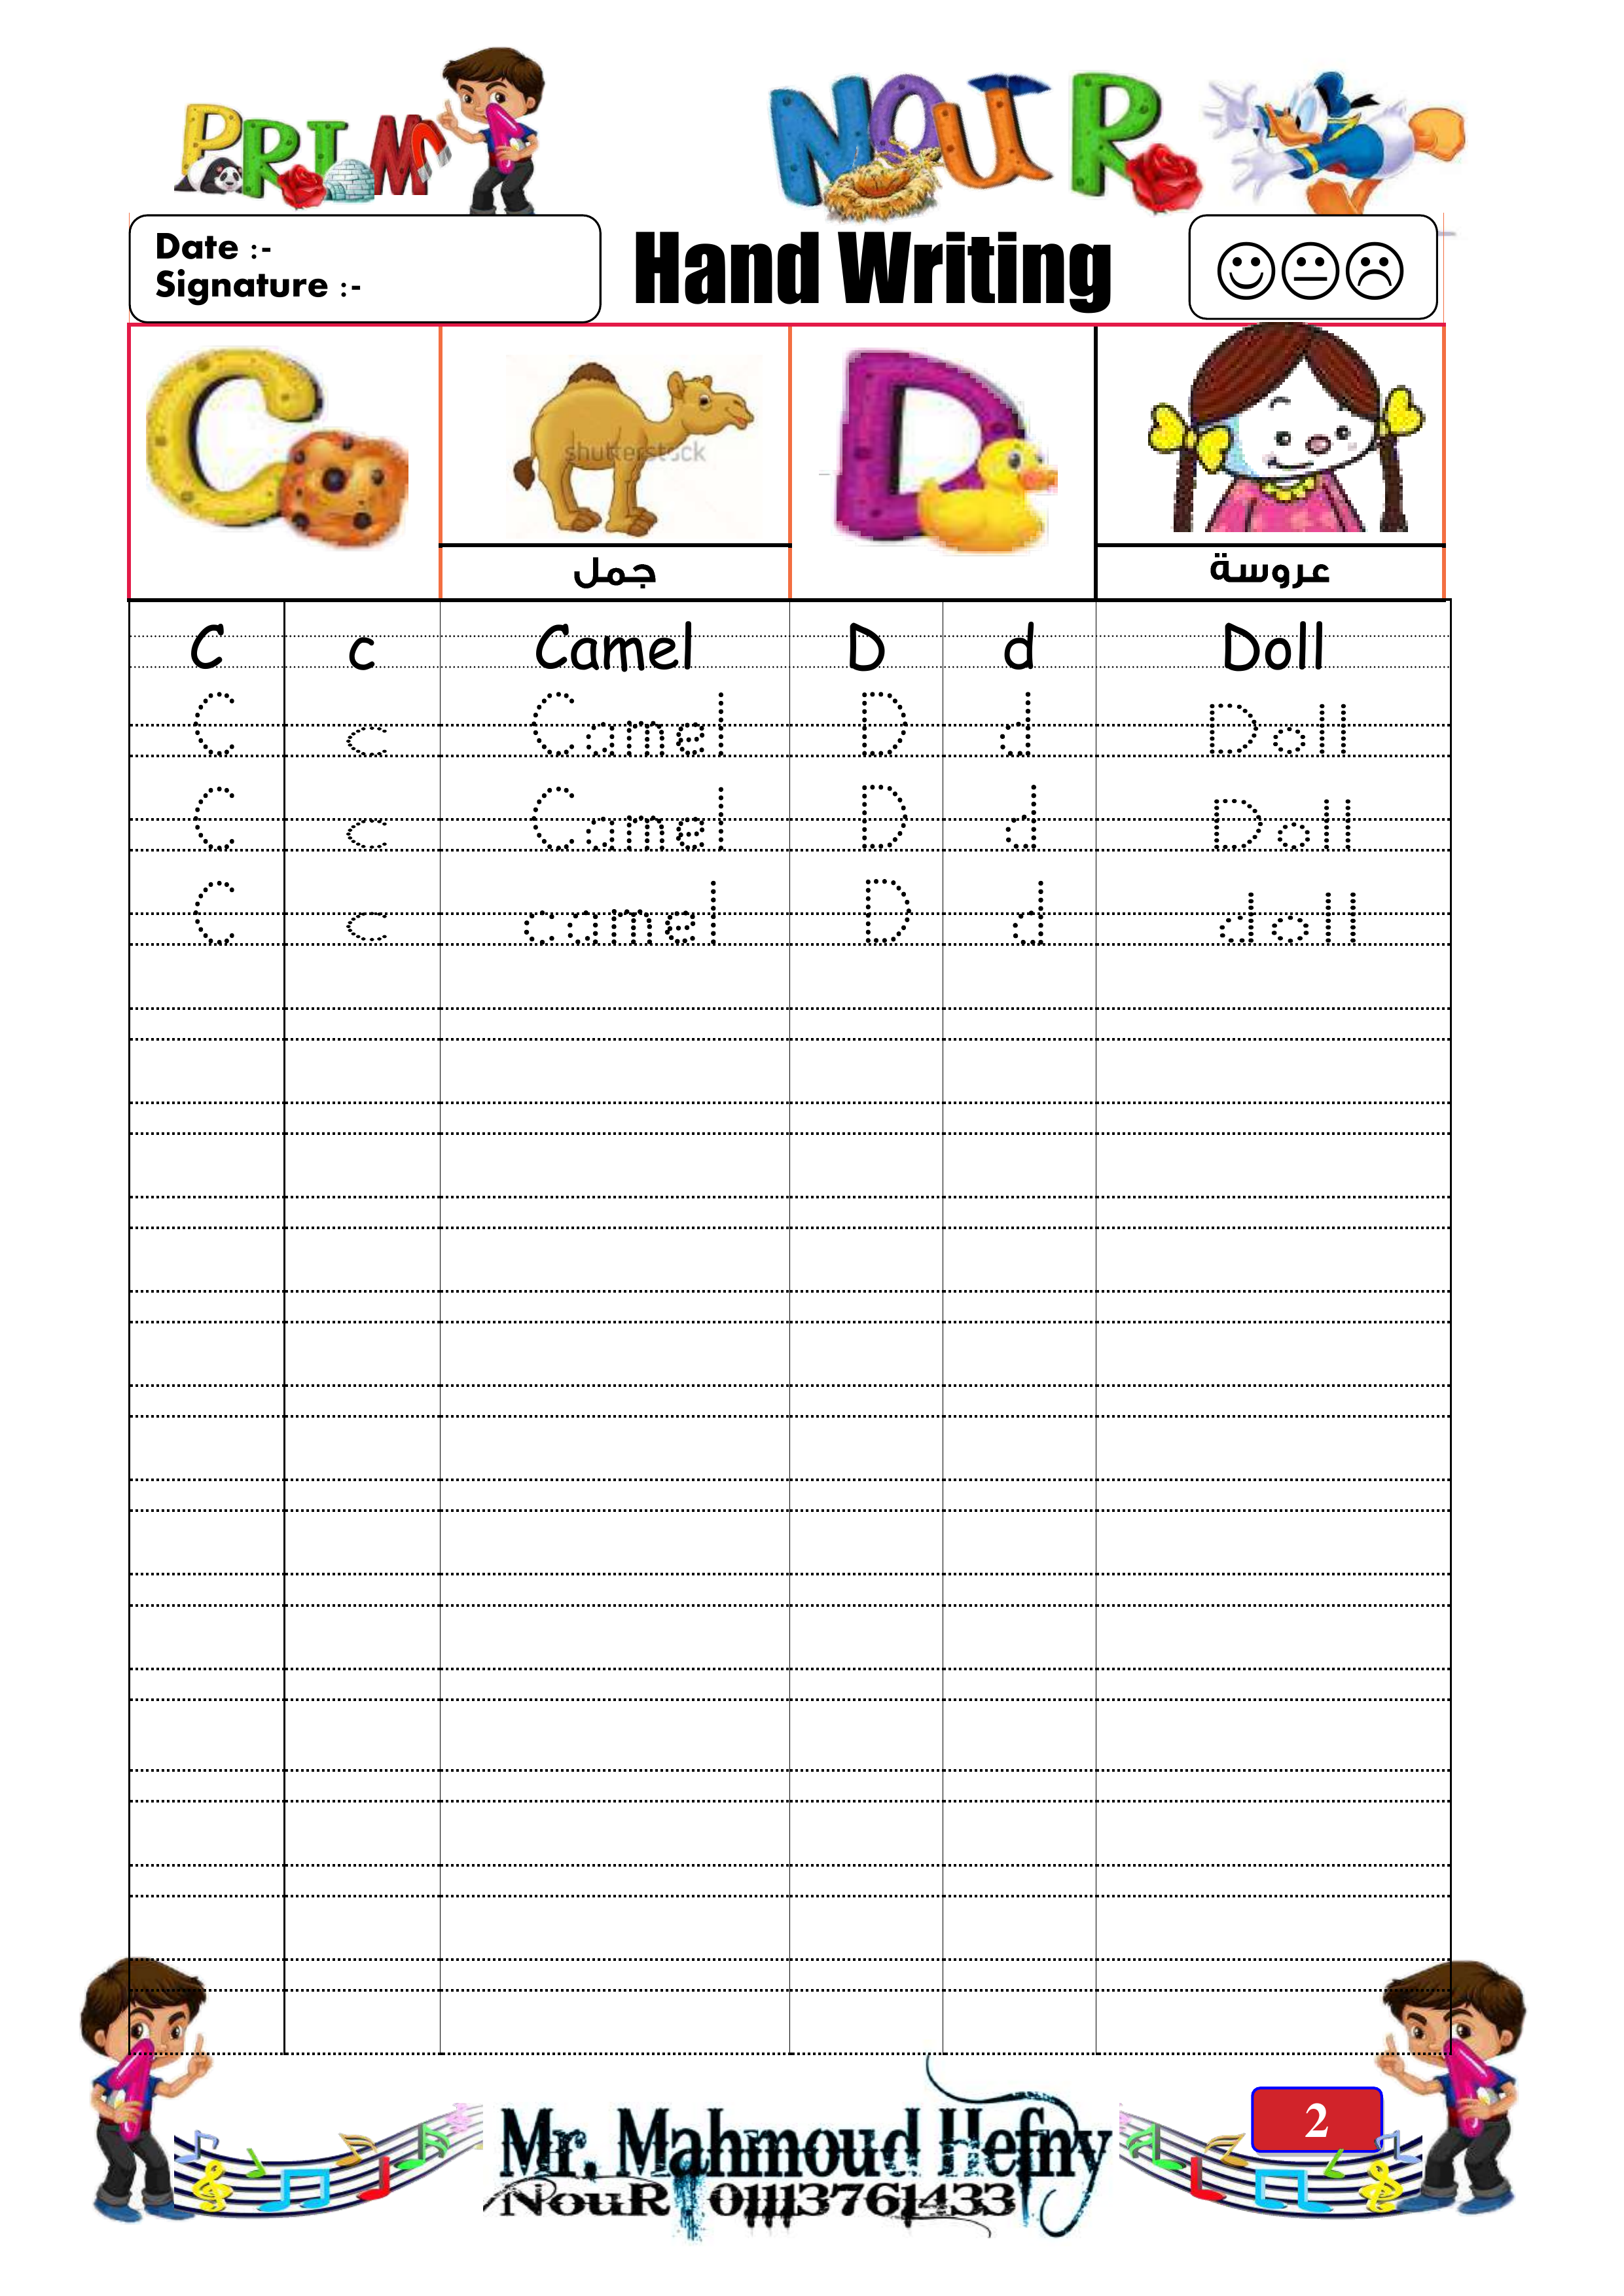 PRIM
NOUR
Date :-
Signature :-
Hand Writing
C
shutterstock
D
جمل
عروسة
C c Camel D d Doll
C c Camel D d Doll
C c Camel D d Doll
C c camel D d doll
2
Mr. Mahmoud Hefny
NouR 01113761433